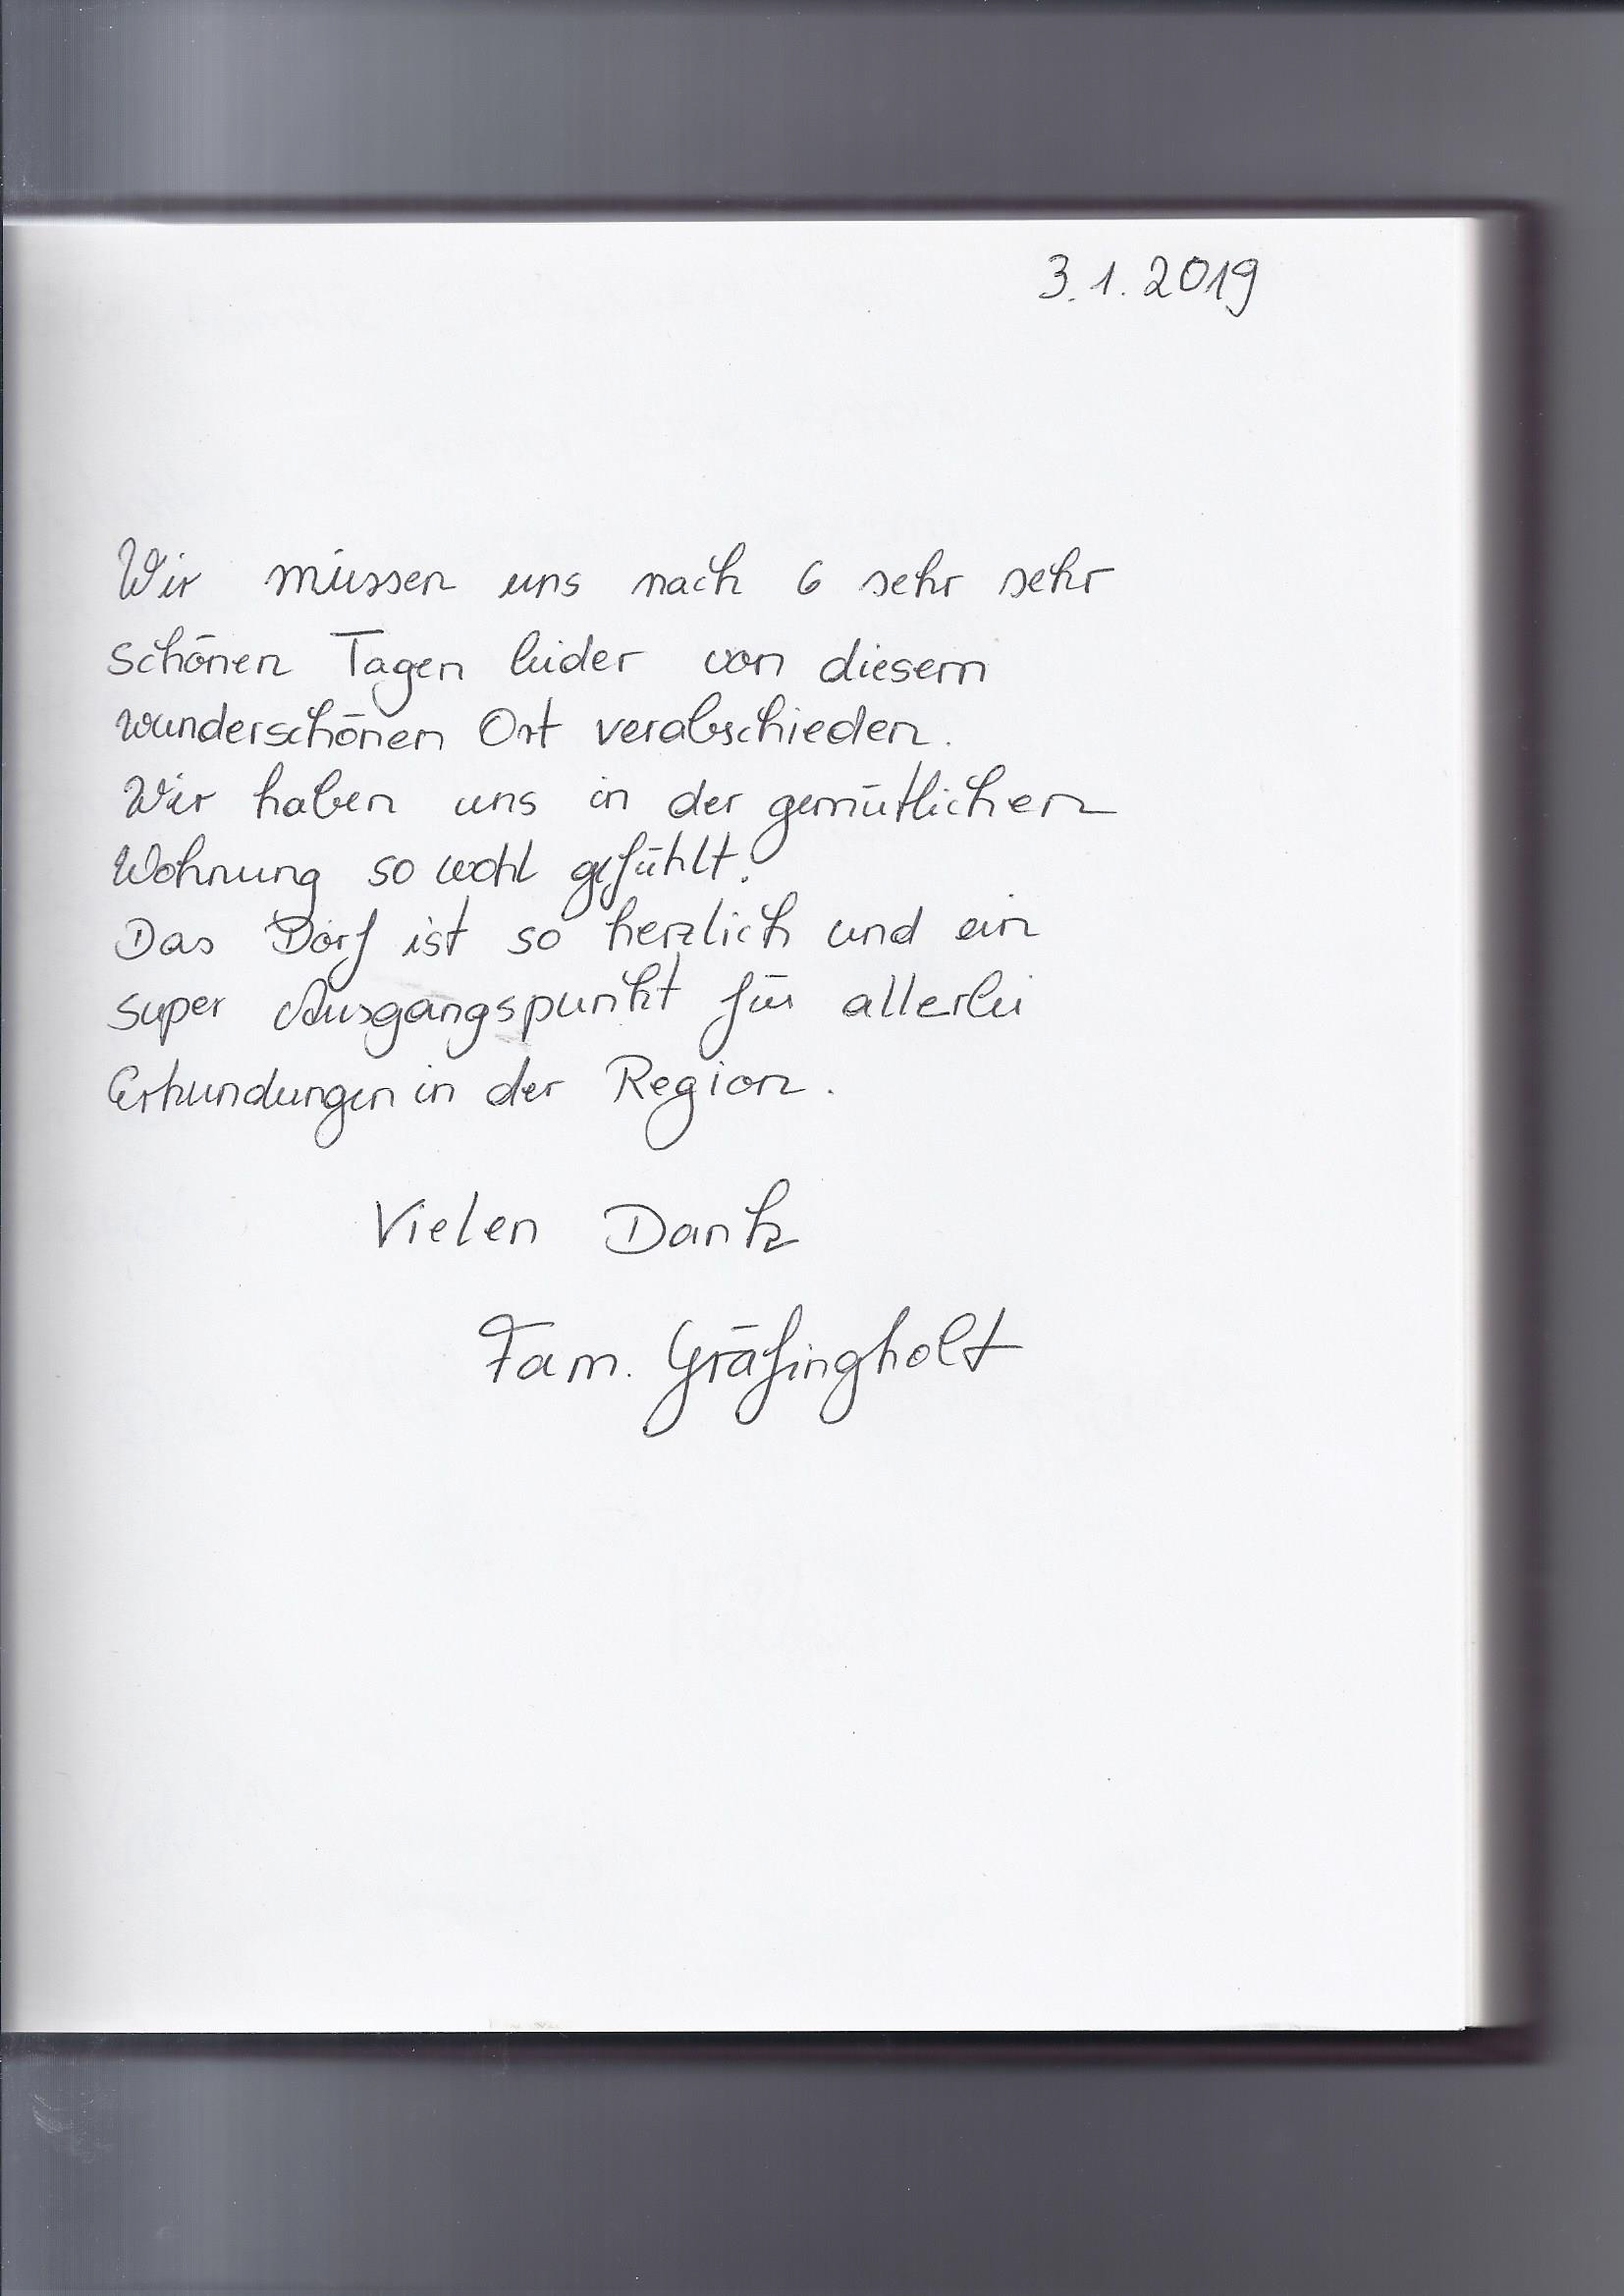 3.1.2019
Wir müssen uns nach 6 sehr sehr
schönen Tagen leider von diesem
wunderschönen Ort verabschieden.
Wir haben uns in der gemütlichen
Wohnung so wohl gefühlt.
Das Dorf ist so herzlich und ein
super Ausgangspunkt für allerlei
Erkundungen in der Region.
Vielen Dank
Fam. Gräfingholt